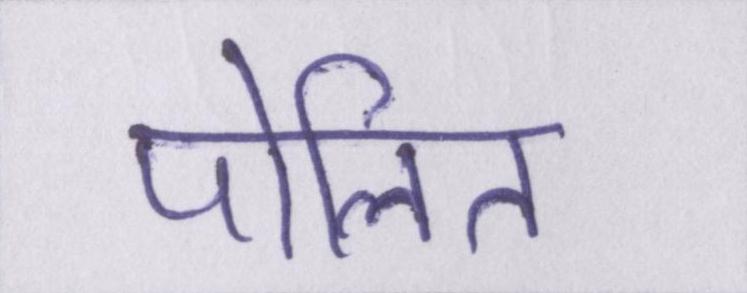 पोलित